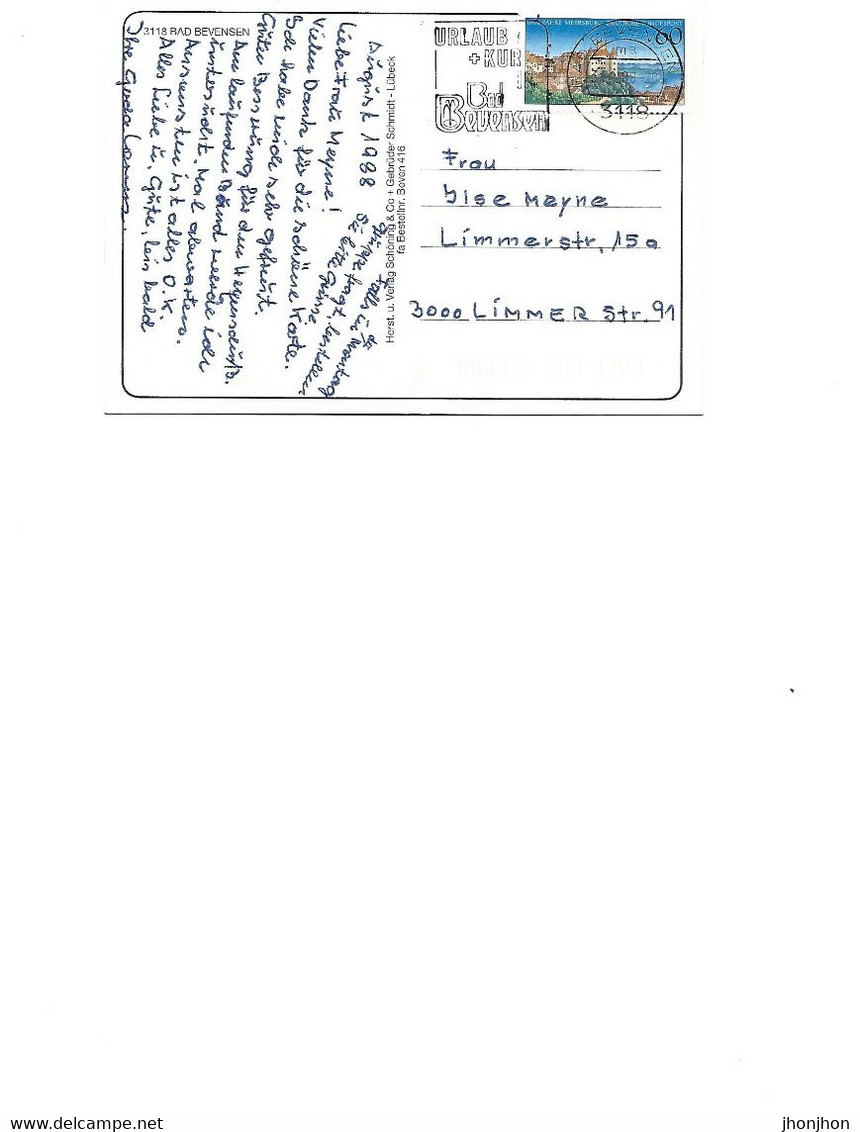 3118 BAD BEVENSEN
August 1988
Liebe Frau Meyne!
Vielen Dank für die schöne Karte.
Ich habe mich sehr gefreut.
Gute Besserung für den
Am laufenden Band werde ich
untersucht. Mal abwarten.
Ansonsten ist alles O.K.
Alles Liebe u. Gute, bis bald
Ihre Gerda
Falls
Sie
fragt, bestellen
Sie bitte Grüße
Herst. u. Verlag Schöning & Co + Gebrüder Schmidt - Lübeck
fa Bestellnr. Beven 416
URLAUB
+ KUR
Bad
Bevensen
60
BEVENSEN
3118
Frau
Meyne
Limmerstr. 15a
3000 LIMMER Str. 91
www.delcampe.net
jhonjhon